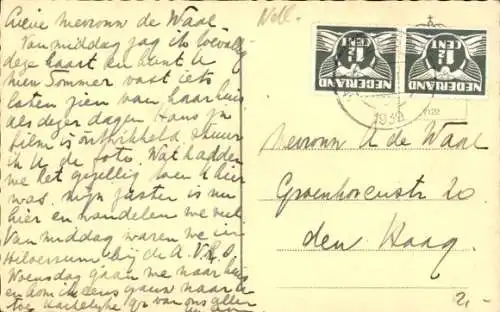 Lieve Mevrouw de Waal
Van middag zag ik toevallig
deze kaart en kunt u
mien Sommer vast iets
laten zien van haar huis
als dezer dagen Hans zn
film is ontwikkeld stuur
ik U de foto. Wat hadden
we het gezellig toen U hier
was. Mijn zuster is nu
hier en wandelen we veel
Van middag waren we in
Hilversum bij de A.V.R.O.
Woensdag gaan we naar huis
en kom ik eens gauw naar U
toe. Hartelijke gr van ons allen
Nell.
1½
CENT
NEDERLAND
1½
CENT
NEDERLAND
Mevrouw A de Waal
Groenhovenstr 20
den Haag.
2,-